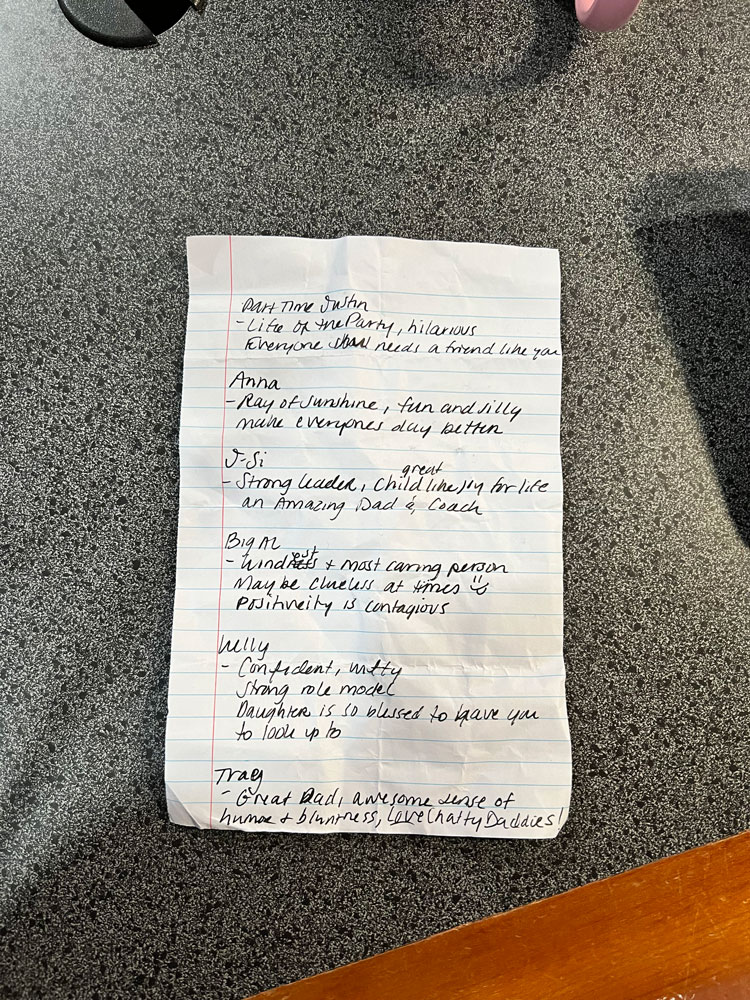 Part Time Justin
- Life of the Party, hilarious
Everyone needs a friend like you
Anna
- Ray of sunshine, fun and silly
make everyones day better
J-Si
great
- Strong leader, childlike joy for life
an Amazing Dad & Coach
Big Al
est
- Kind + most caring person
May be clueless at times
positiveity is contagious
Kelly
- Confident, witty
Strong role model
Daughter is so blessed to have you
to look up to
- Great Dad, awesome sense of
humor + bluntness, Love Chatty Daddies!